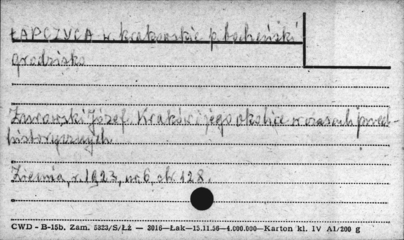 ŁAPCZYCA w. krakowskie p. bocheński
grodzisko
Żurowski Józef Kraków i jego okolice w czasach przed-
historycznych
Ziemia, r. 1923, nr 6, str. 128.
CWD - B-15b. Zam. 5323/S/Łż — 2016—Łak—15.11.56—4.000.000—Karton kl. IV A1/200 g